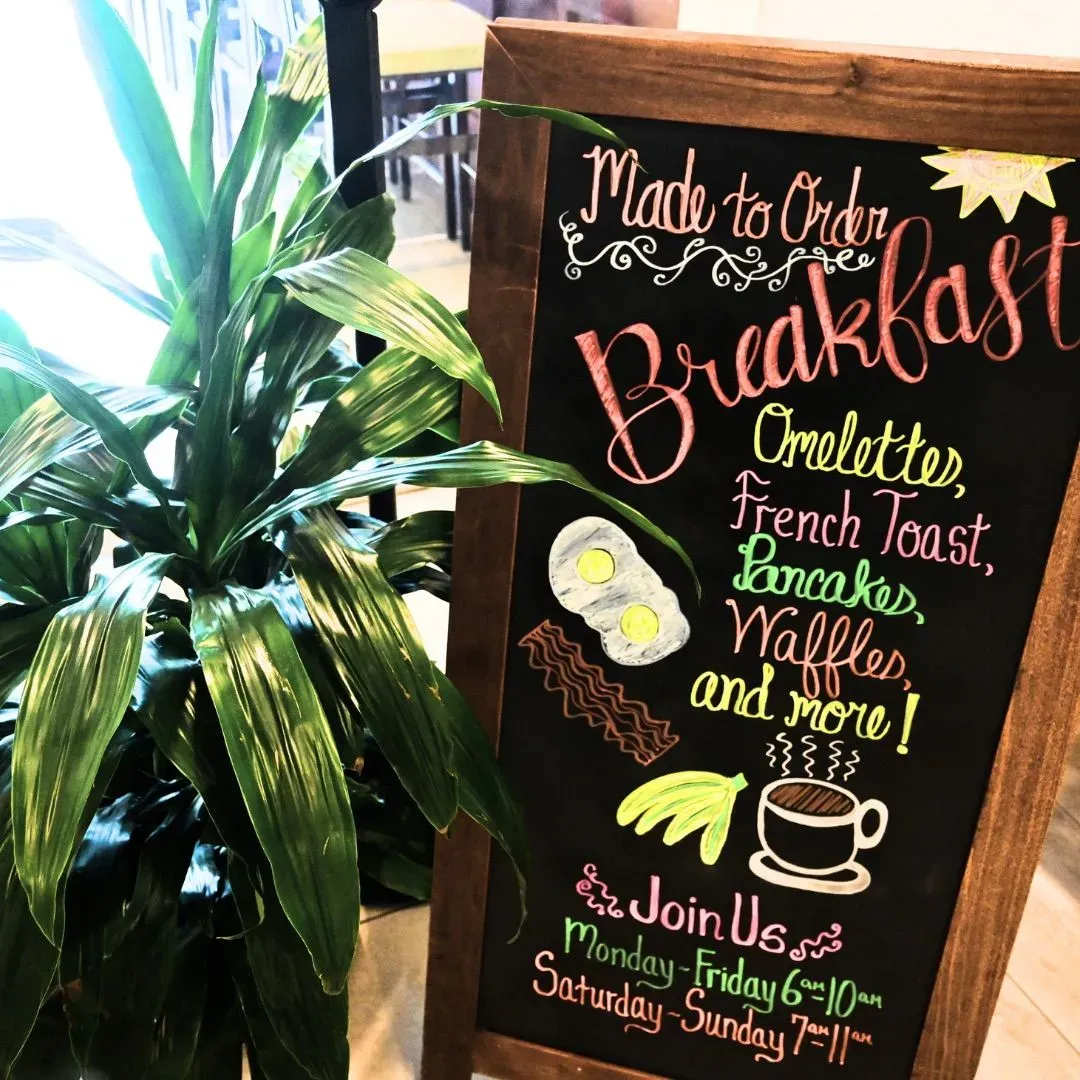 Made to Order
Breakfast
Omelettes,
French Toast,
Pancakes,
Waffles,
and more!
Join Us
Monday-Friday 6am-10am
Saturday-Sunday 7am-11am